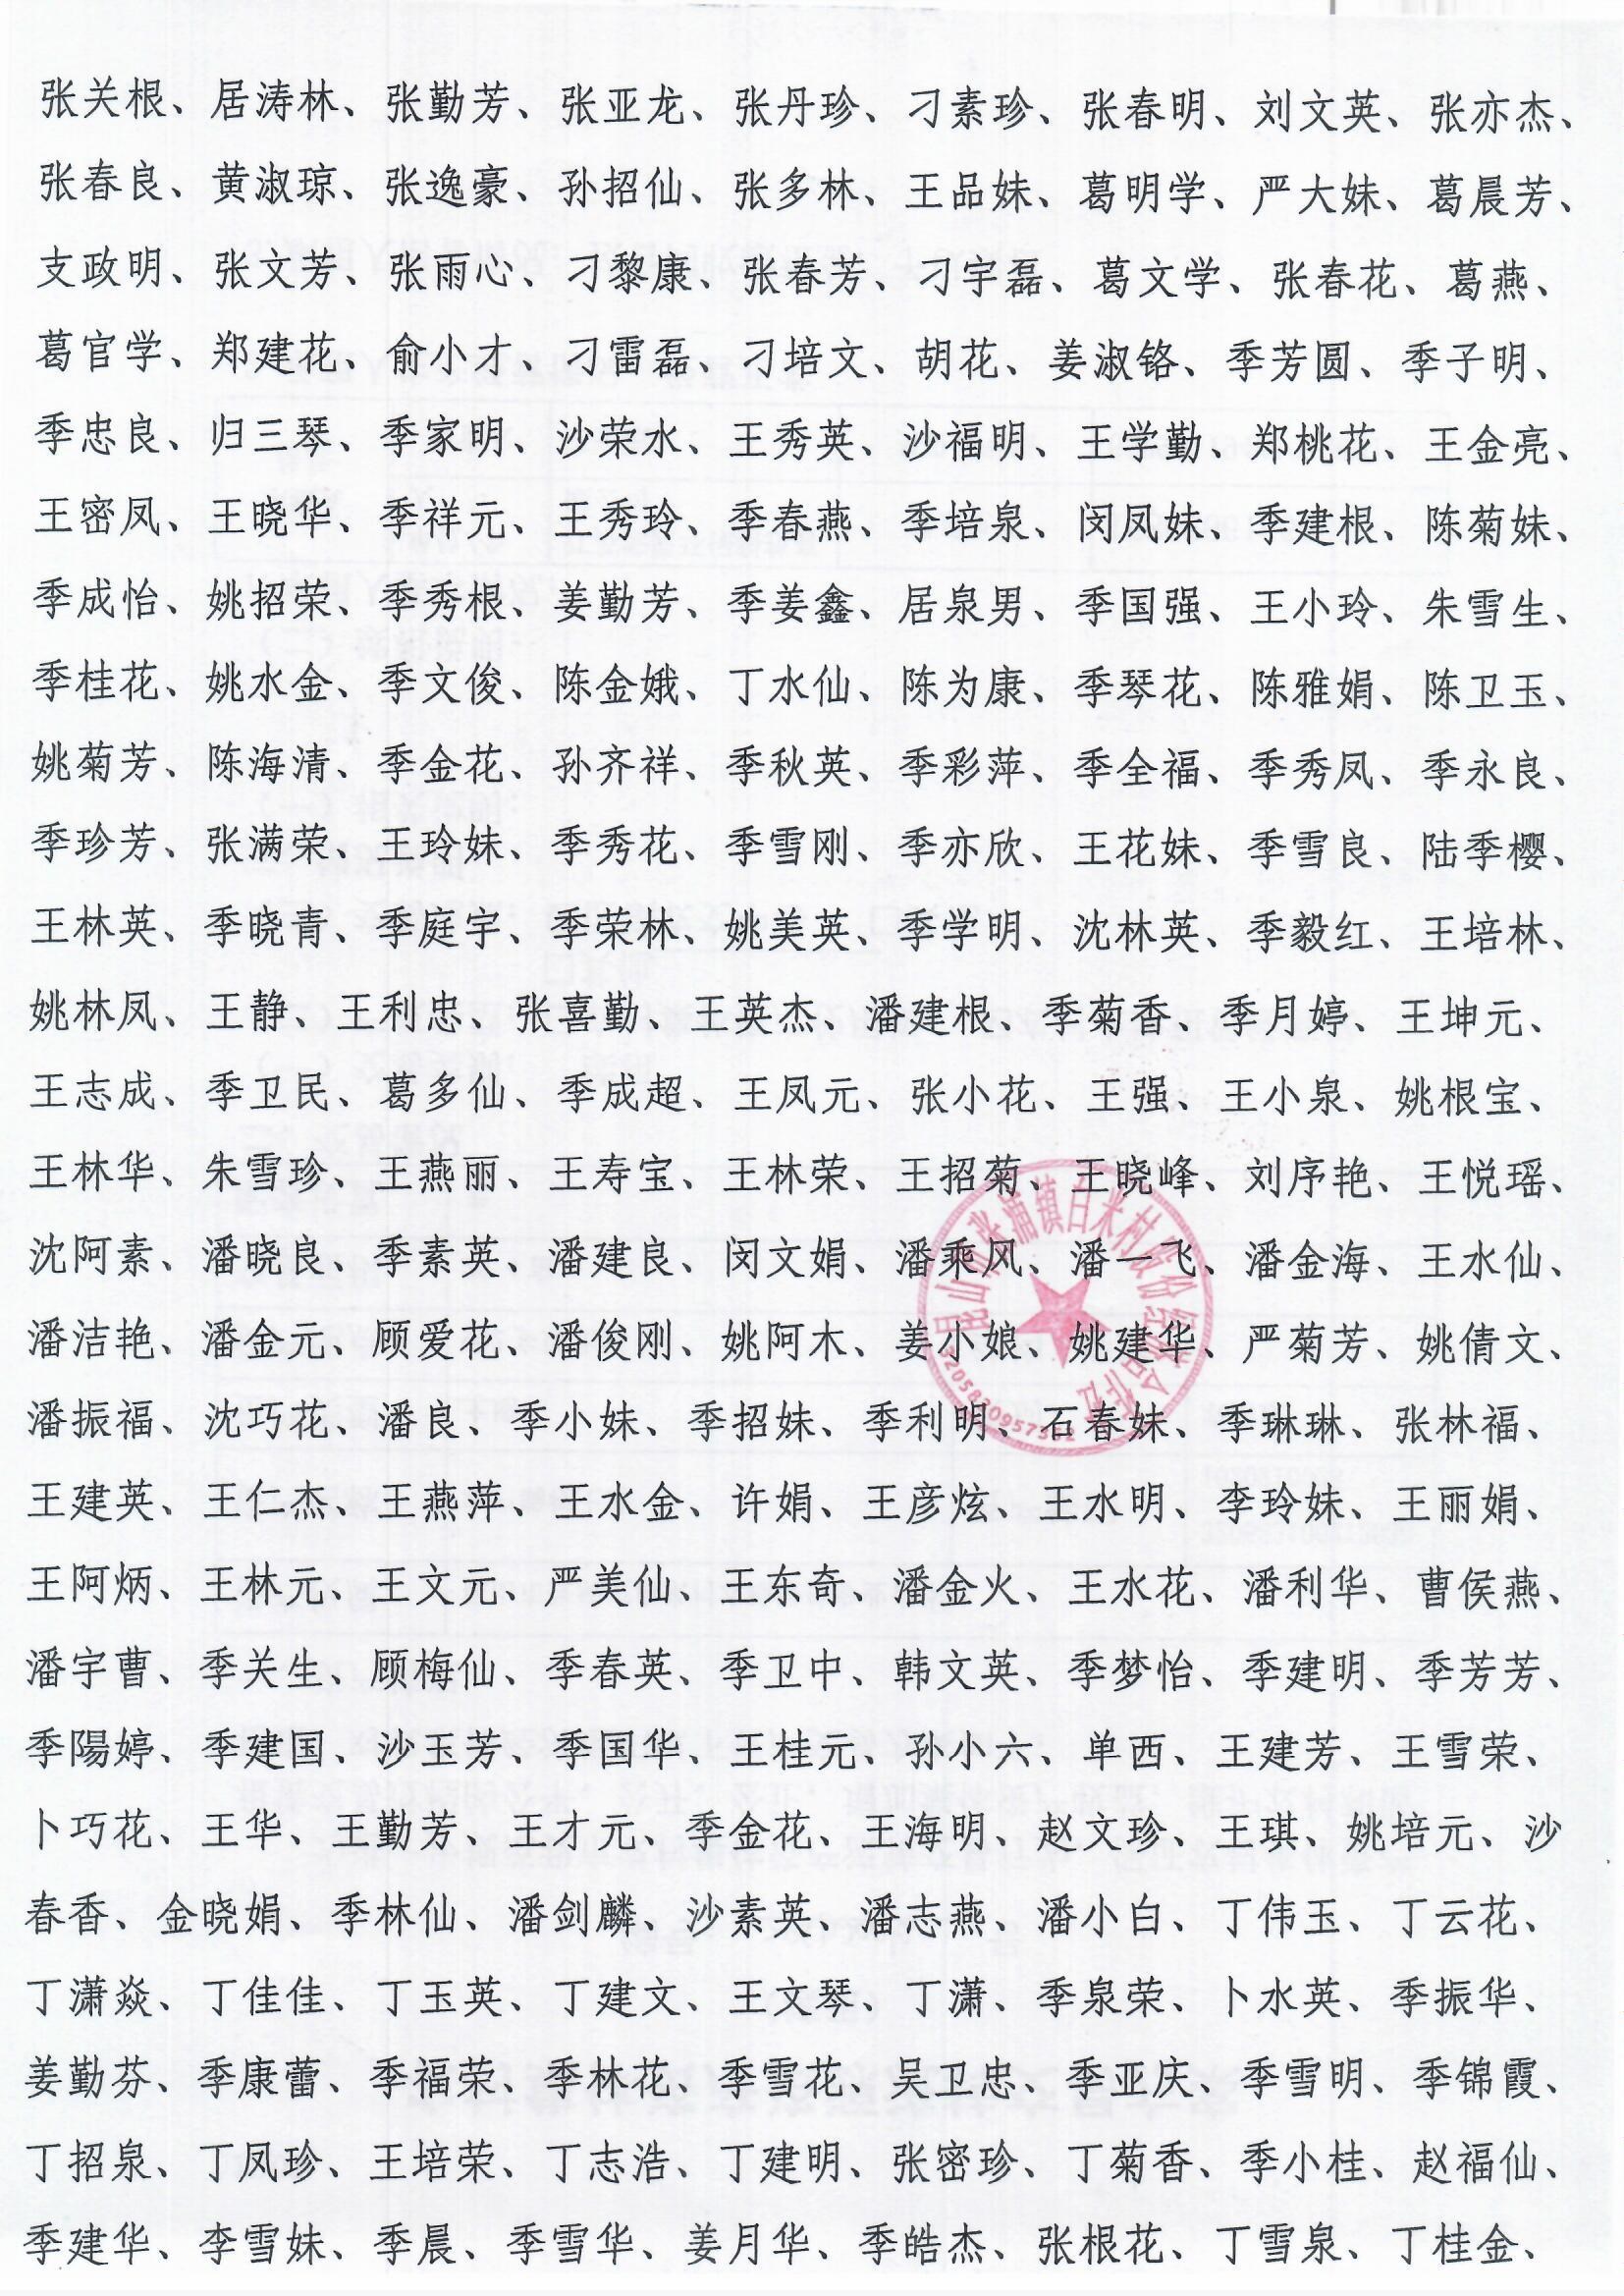 张关根、居涛林、张勤芳、张亚龙、张丹珍、刁素珍、张春明、刘文英、张亦杰、
张春良、黄淑琼、张逸豪、孙招仙、张多林、王品妹、葛明学、严大妹、葛晨芳、
支政明、张文芳、张雨心、刁黎康、张春芳、刁宇磊、葛文学、张春花、葛燕、
葛官学、郑建花、俞小才、刁雷磊、刁培文、胡花、姜淑铬、季芳圆、季子明、
季忠良、归三琴、季家明、沙荣水、王秀英、沙福明、王学勤、郑桃花、王金亮、
王密凤、王晓华、季祥元、王秀玲、季春燕、季培泉、闵凤妹、季建根、陈菊妹、
季成怡、姚招荣、季秀根、姜勤芳、季姜鑫、居泉男、季国强、王小玲、朱雪生、
季桂花、姚水金、季文俊、陈金娥、丁水仙、陈为康、季琴花、陈雅娟、陈卫玉、
姚菊芳、陈海清、季金花、孙齐祥、季秋英、季彩萍、季全福、季秀凤、季永良、
季珍芳、张满荣、王玲妹、季秀花、季雪刚、季亦欣、王花妹、季雪良、陆季樱、
王林英、季晓青、季庭宇、季荣林、姚美英、季学明、沈林英、季毅红、王培林、
姚林凤、王静、王利忠、张喜勤、王英杰、潘建根、季菊香、季月婷、王坤元、
王志成、季卫民、葛多仙、季成超、王凤元、张小花、王强、王小泉、姚根宝、
王林华、朱雪珍、王燕丽、王寿宝、王林荣、王招菊、王晓峰、刘序艳、王悦瑶、
沈阿素、潘晓良、季素英、潘建良、闵文娟、潘乘风、潘一飞、潘金海、王水仙、
潘洁艳、潘金元、顾爱花、潘俊刚、姚阿木、姜小娘、姚建华、严菊芳、姚倩文、
潘振福、沈巧花、潘良、季小妹、季招妹、季利明、石春妹、季琳琳、张林福、
王建英、王仁杰、王燕萍、王水金、许娟、王彦炫、王水明、李玲妹、王丽娟、
王阿炳、王林元、王文元、严美仙、王东奇、潘金火、王水花、潘利华、曹侯燕、
潘宇曹、季关生、顾梅仙、季春英、季卫中、韩文英、季梦怡、季建明、季芳芳、
季陽婷、季建国、沙玉芳、季国华、王桂元、孙小六、单西、王建芳、王雪荣、
卜巧花、王华、王勤芳、王才元、季金花、王海明、赵文珍、王琪、姚培元、沙
春香、金晓娟、季林仙、潘剑麟、沙素英、潘志燕、潘小白、丁伟玉、丁云花、
丁潇焱、丁佳佳、丁玉英、丁建文、王文琴、丁潇、季泉荣、卜水英、季振华、
姜勤芬、季康蕾、季福荣、季林花、季雪花、吴卫忠、季亚庆、季雪明、季锦霞、
丁招泉、丁凤珍、王培荣、丁志浩、丁建明、张密珍、丁菊香、季小桂、赵福仙、
季建华、李雪妹、季晨、季雪华、姜月华、季皓杰、张根花、丁雪泉、丁桂金、